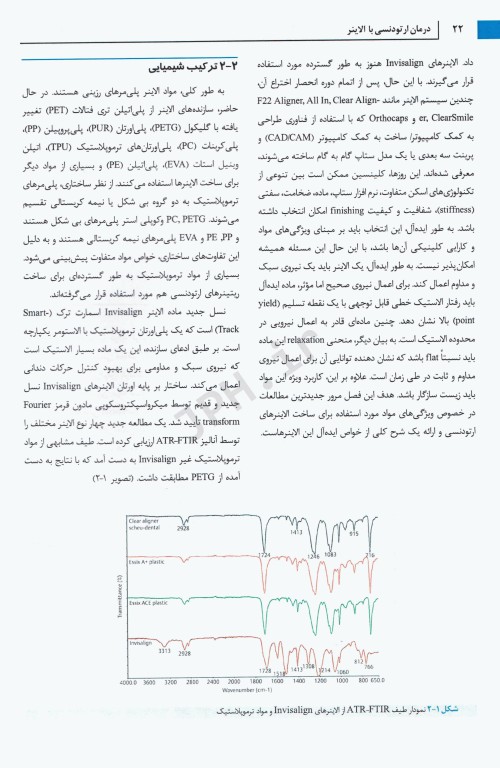 ۲۲ درمان ارتودنسی با الاینر
داد. الاینرهای Invisalign هنوز به طور گسترده مورد استفاده
قرار می‌گیرند. با این حال، پس از اتمام دوره انحصار اختراع آن،
چندین سیستم الاینر مانند F22 Aligner, All In, Clear Align-
er, ClearSmile و Orthocaps که با استفاده از فناوری طراحی
به کمک کامپیوتر/ ساخت به کمک کامپیوتر (CAD/CAM) و
پرینت سه بعدی یا یک مدل ستاپ گام به گام ساخته می‌شوند،
معرفی شده‌اند. این روزها، کلینسین ممکن است بین تنوعی از
تکنولوژی‌های اسکن متفاوت، نرم افزار ستاپ، ماده، ضخامت، سفتی
(stiffness)، شفافیت و کیفیت finishing امکان انتخاب داشته
باشد. به طور ایده‌آل، این انتخاب باید بر مبنای ویژگی‌های مواد
و کارایی کلینیکی آن‌ها باشد، با این حال این مسئله همیشه
امکان‌پذیر نیست. به طور ایده‌آل، یک الاینر باید یک نیروی سبک
و مداوم اعمال کند. برای اعمال نیروی صحیح اما مؤثر، ماده ایده‌آل
باید رفتار الاستیک خطی قابل توجهی با یک نقطه تسلیم (yield
point) بالا نشان دهد. چنین ماده‌ای قادر به اعمال نیرویی در
محدوده الاستیک است. به بیان دیگر، منحنی relaxation این ماده
باید نسبتاً flat باشد که نشان دهنده توانایی آن برای اعمال نیروی
مداوم و ثابت در طی زمان است. علاوه بر این، کاربرد ویژه این مواد
باید زیست سازگار باشد. هدف این فصل مرور جدیدترین مطالعات
در خصوص ویژگی‌های مواد مورد استفاده برای ساخت الاینرهای
ارتودنسی و ارائه یک شرح کلی از خواص ایده‌آل این الاینرهاست.
۲-۲ ترکیب شیمیایی
به طور کلی، مواد الاینر پلی‌مرهای رزینی هستند. در حال
حاضر، سازنده‌های الاینر از پلی‌اتیلن تری فتالات (PET) تغییر
یافته با گلیکول (PETG)، پلی‌اورتان (PUR)، پلی‌پروپیلن (PP)،
پلی‌کربنات (PC)، پلی‌اورتان‌های ترموپلاستیک (TPU)، اتیلن
وینیل استات (EVA)، پلی‌اتیلن (PE) و بسیاری از مواد دیگر
برای ساخت الاینرها استفاده می‌کنند. از نظر ساختاری، پلی‌مرهای
ترموپلاستیک به دو گروه بی شکل یا نیمه کریستالی تقسیم
می‌شوند. PC, PETG وکوپلی استر پلی‌مرهای بی شکل هستند
و PE ,PP و EVA پلی‌مرهای نیمه کریستالی هستند و به دلیل
این تفاوت‌های ساختاری، خواص مواد متفاوت پیش‌بینی می‌شود.
بسیاری از مواد ترموپلاستیک به طور گسترده‌ای برای ساخت
ریتینرهای ارتودنسی هم مورد استفاده قرار می‌گرفته‌اند.
نسل جدید ماده الاینر Invisalign اسمارت ترک (Smart-
Track) است که یک پلی‌اورتان ترموپلاستیک با الاستومر یکپارچه
است. بر طبق ادعای سازنده، این یک ماده بسیار الاستیک است
که نیروی سبک و مداومی برای بهبود کنترل حرکات دندانی
اعمال می‌کند. ساختار بر پایه اورتان الاینرهای Invisalign نسل
جدید و قدیم توسط میکرواسپکتروسکوپی مادون قرمز Fourier
transform تأیید شد. یک مطالعه جدید چهار نوع الاینر مختلف را
توسط آنالیز ATR-FTIR ارزیابی کرده است. طیف مشابهی از مواد
ترموپلاستیک غیر Invisalign به دست آمد که با نتایج به دست
آمده از PETG مطابقت داشت. (تصویر ۱-۲)
Clear aligner
scheu-dental
2928
1724
1413
1246
1083
915
216
Essix A+ plastic
Essix ACE plastic
Invisalign
3313
2928
1728
1518
1413
1308
1214
1060
812
766
Transmittance [%]
4000.0 3600 3200 2800 2400 2000 1800 1600 1400 1200 1000 800 650.0
Wavenumber (cm-1)
شکل ۱-۲ نمودار طیف ATR-FTIR از الاینرهای Invisalign و مواد ترموپلاستیک